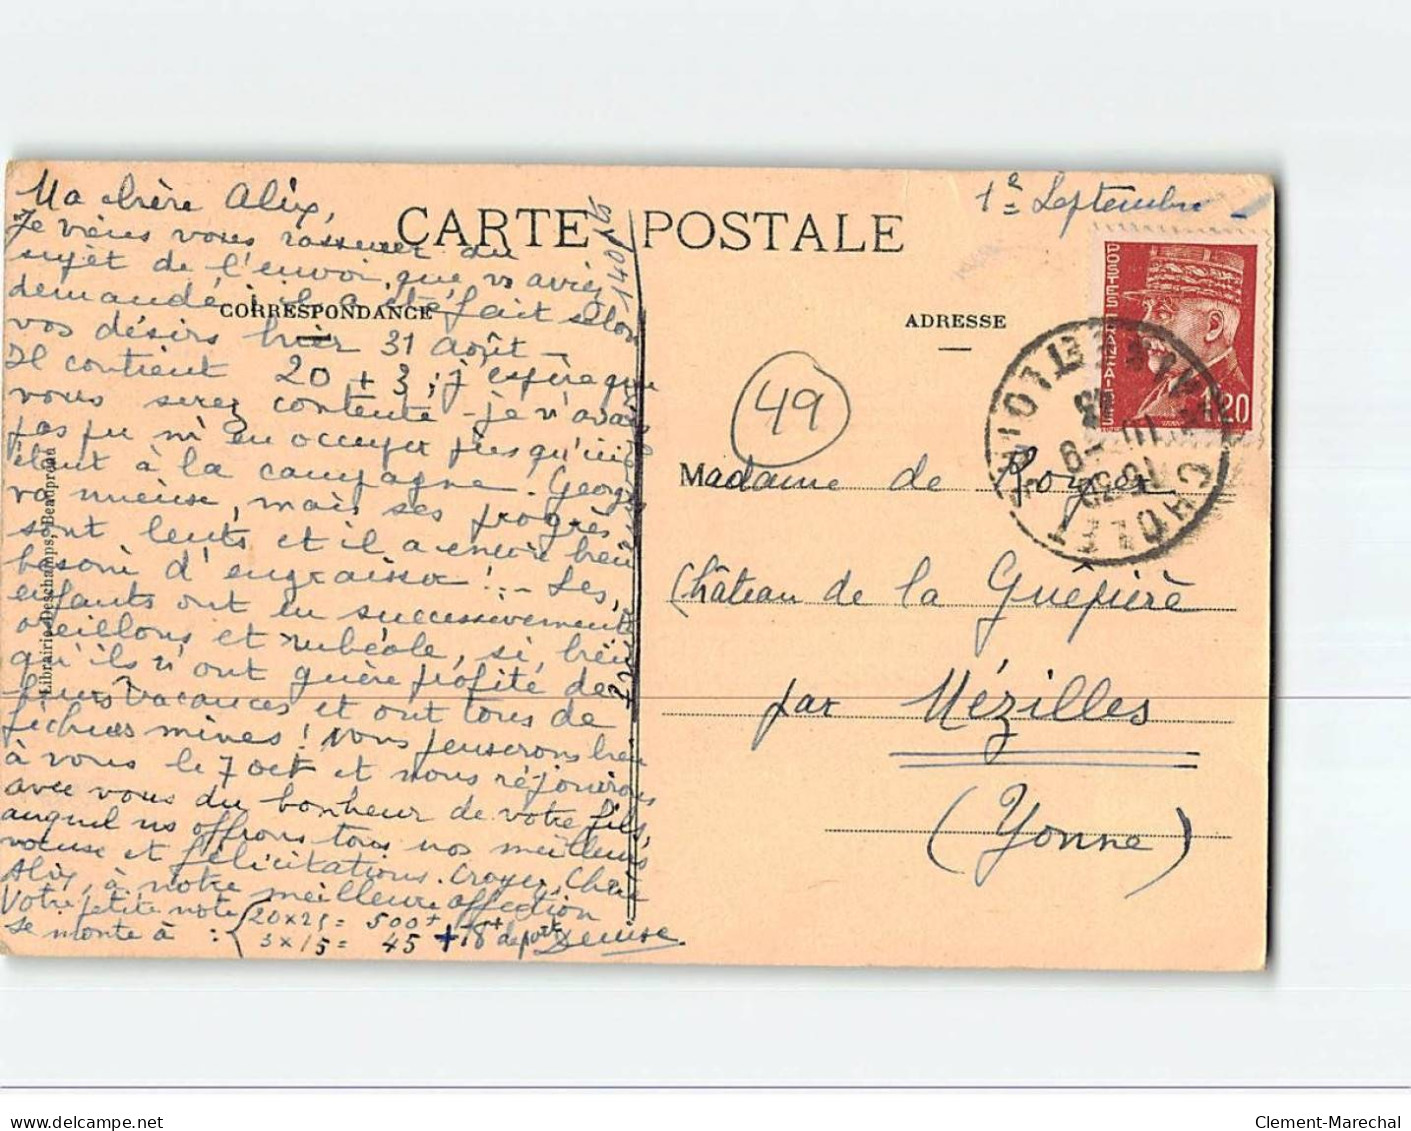 Ma chère Alix,
Je viens vous rassurer du
sujet de l'envoi que vs aviez
demandé ; il a été fait selon
vos désirs hier 31 août -
Il contient 20 + 3 ; j'espère que
vous serez contente - je n'avais
pas pu m'en occuper plus qu'ici
étant à la campagne. Georges
va mieux, mais ses progrès
sont lents et il a encore bien
besoin d'engraisser ! - Les
enfants ont eu successivement
oreillons et rubéole, si bien
qu'ils n'ont guère profité de
leurs vacances et ont tous de
fichues mines ! Nous penserons bien
à vous le 7 oct et nous réjouirons
avec vous du bonheur de votre fils,
auquel ns offrons tous nos meilleurs
voeux et félicitations. Croyez, Chère
Alix, à notre meilleure affection
Votre petite note
se monte à : 20 x 25 = 500 +
3 x 15 = 45 + 18 de port
Denise
CARTE POSTALE
CORRESPONDANCE
ADRESSE
Librairie Deschamps, Beaupréau
1e Septembre -
POSTES FRANÇAISES
1,20
CHOLET
MAINE ET LOIRE
49
Madame de
Château de la Guêpière
par Mézilles
(Yonne)
delcampe.net
Clement-Marechal